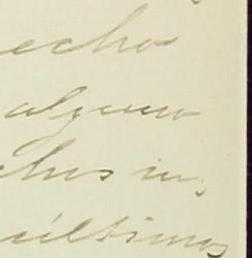 echo
alguno
chos in,
últimos